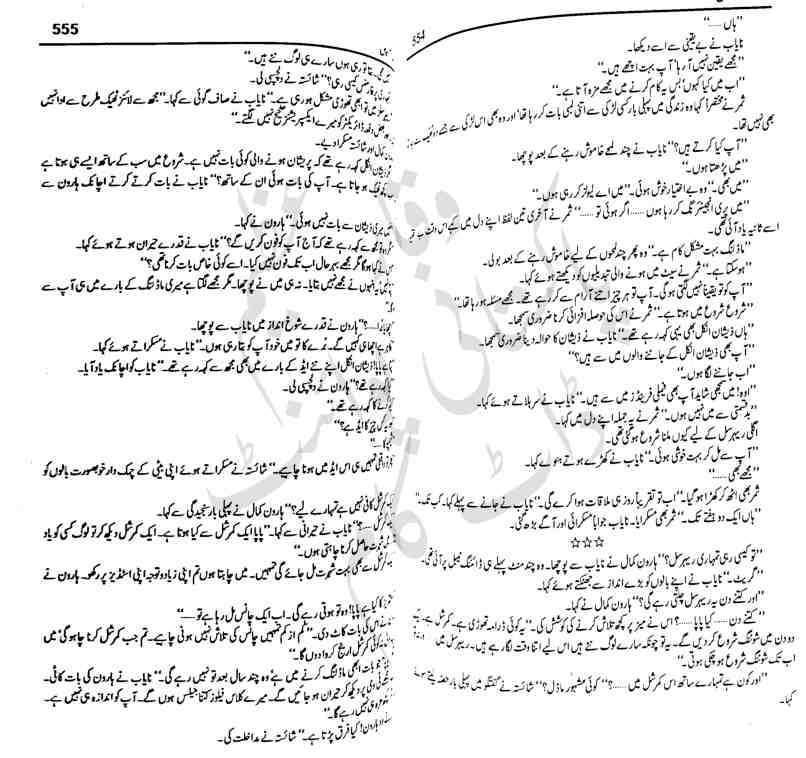 554
"ہاں ......"
نایاب نے بے یقینی سے اسے دیکھا۔
"مجھے یقین نہیں آ رہا' آپ بہت اچھے ہیں۔"
"اب میں کیا کہوں' بس یہ کام کرنے میں مجھے مزہ آتا ہے۔"
ثمر نے مختصراً کہا وہ زندگی میں پہلی بار کسی لڑکی سے اتنی لمبی بات کر رہا تھا' اور وہ بھی اس لڑکی سے جسے وہ
بھی نہیں تھا۔
"آپ کیا کرتے ہیں؟" نایاب نے چند لمحے خاموش رہنے کے بعد پوچھا۔
"میں پڑھتا ہوں۔"
"میں بھی۔" وہ بے اختیار خوش ہوئی۔ "میں اے لیولز کر رہی ہوں۔"
"میں پری انجینئرنگ کر رہا ہوں ...... اگر ہوئی تو ......" ثمر نے آخری تین لفظ اپنے دل میں کہے اس وقت
اسے ثانیہ یاد آئی تھی۔
"ماڈلنگ بہت مشکل کام ہے۔" وہ پھر چند لمحوں کے لیے خاموش رہنے کے بعد بولی۔
"ہو سکتا ہے۔" ثمر نے سیٹ میں ہونے والی تبدیلیوں کو دیکھتے ہوئے کہا۔
"آپ کو تو یقیناً نہیں لگتی ہو گی۔ آپ تو ہر چیز اتنے آرام سے کر رہے تھے۔ مجھے مسئلہ ہو رہا تھا۔"
"شروع شروع میں ہوتا ہے۔" ثمر نے اس کی حوصلہ افزائی کرنا ضروری سمجھا۔
"ہاں ذیشان انکل بھی یہی کہہ رہے تھے۔" نایاب نے ذیشان کا حوالہ دینا ضروری سمجھا۔
"آپ بھی ذیشان انکل کے جاننے والوں میں سے ہیں؟"
"اب جاننے لگا ہوں۔"
"اوہ! میں سمجھی شاید آپ بھی فیملی فرینڈز میں سے ہیں۔" نایاب نے سر ہلاتے ہوئے کہا۔
"بدقسمتی سے میں نہیں ہوں۔" ثمر نے یہ جملہ اپنے دل میں کہا۔
اگلی ریہرسل کے لیے کیوں ملنا شروع ہو گئی تھی۔
"آپ سے مل کر بہت خوشی ہوئی۔" نایاب نے کھڑے ہوتے ہوئے کہا۔
"مجھے بھی ......"
ثمر بھی اٹھ کر کھڑا ہو گیا۔ "اب تو تقریباً روز ہی ملاقات ہوا کرے گی۔" نایاب نے جانے سے پہلے کہا۔ کب تک۔"
"ہاں ایک دو ہفتے تک۔" ثمر بھی مسکرایا۔ نایاب جواباً مسکرائی اور آگے بڑھ گئی۔
☆☆☆
"تو کیسی رہی تمہاری ریہرسل؟" ہارون کمال نے نایاب سے پوچھا۔ وہ چند منٹ پہلے ہی ڈائننگ ٹیبل پر آئی تھی۔
"گریٹ۔" نایاب نے اپنے بالوں کو بڑے انداز سے جھٹکتے ہوئے کہا۔
"اور کتنے دن یہ ریہرسل چلتی رہے گی؟" ہارون کمال نے کہا۔
"کتنے دن ...... کیا پاپا ......؟ اس نے میز پر کچھ تلاش کرنے کی کوشش کی۔ "یہ کوئی ڈرامہ تھوڑی ہے۔ کمرشل ہے۔
دو دن میں شوٹنگ شروع کر دیں گے۔ یہ تو چونکہ سارے لوگ نئے ہیں اس لیے اتنا وقت لگا رہے ہیں۔ ریہرسل میں
اب تک شوٹنگ شروع ہو چکی ہوتی۔"
"اور کون ہے تمہارے ساتھ اس کمرشل میں ......؟" کوئی مشہور ماڈل؟" شائستہ نے گفتگو میں پہلی بار حصہ لیتے ہوئے
کہا۔
555
بتا تو رہی ہوں سارے ہی لوگ نئے ہیں۔"
کیسی رہی؟" شائستہ نے دلچسپی لی۔
تو ابھی تھوڑی مشکل ہو رہی ہے۔" نایاب نے صاف گوئی سے کہا۔ "مجھ سے لائنز ٹھیک طرح سے ادا نہیں
دفعہ ڈائریکٹر کو میرے ایکسپریشنز صحیح نہیں لگتے۔"
اور شائستہ مسکرا دیے۔
ذیشان انکل کہہ رہے تھے کہ پریشان ہونے والی کوئی بات نہیں ہے۔ شروع میں سب کے ساتھ ایسے ہی ہوتا ہے
ٹھیک ہو جاتا ہے۔ آپ کی بات ہوئی ان کے ساتھ؟" نایاب نے بات کرتے کرتے اچانک ہارون سے
میری ذیشان سے بات نہیں ہوئی۔" ہارون نے کہا۔
سے کہہ رہے تھے کہ آج آپ کو فون کریں گے؟" نایاب نے قدرے حیران ہوتے ہوئے کہا۔
مگر مجھے بہر حال اب تک فون نہیں کیا۔ اسے کوئی خاص بات کرنا تھی؟"
یہ انہوں نے مجھے نہیں بتایا۔ نہ ہی میں نے پوچھا۔ مگر مجھے لگتا ہے میری ماڈلنگ کے بارے میں ہی آپ سے
؟" ہارون نے قدرے شوخ انداز میں نایاب سے پوچھا۔
اچھا ہی کہیں گے۔ برے کا تو میں خود آپ کو بتا رہی ہوں۔" نایاب نے مسکراتے ہوئے کہا۔
پاپا! ذیشان انکل اپنے نئے ایڈ کے بارے میں بھی مجھ سے کہہ رہے تھے۔" نایاب کو اچانک یاد آیا۔
کہہ رہے تھے؟" ہارون نے دلچسپی لی۔
کرنے کا کہہ رہے تھے۔"
کس چیز کا ایڈ ہے؟"
نہیں ہی اس ایڈ میں ہونا چاہیے۔" شائستہ نے مسکراتے ہوئے اپنی بیٹی کے چمک دار خوبصورت بالوں کو
کمرشل کافی نہیں ہے تمہارے لیے؟" ہارون کمال نے پہلی بار سنجیدگی سے کہا۔
کمرشل ......؟" نایاب نے حیرانی سے کہا۔ "پاپا ایک کمرشل سے کیا ہوتا ہے۔ ایک کمرشل دیکھ کر تو لوگ کسی کو یاد
شہرت حاصل کرنا چاہتی ہوں۔"
کمرشل سے بھی بہت شہرت مل جائے گی تمہیں۔ میں چاہتا ہوں تم اپنی زیادہ توجہ اپنی اسٹڈیز پر رکھو۔ ہارون نے
کا کیا ہے پاپا! وہ تو ہوتی رہے گی۔ اب ایک چانس مل رہا ہے تو ......"
نے اس کی بات کاٹ دی۔ "کم از کم تمہیں چانس کی تلاش نہیں ہونی چاہیے۔ تم جب کمرشل کرنا چاہو گی' میں
کوئی کمرشل ارینج کروا دوں گا۔"
بات ابھی ماڈلنگ کرنے میں ہے' وہ چند سال بعد تو نہیں رہے گی۔" نایاب نے ہارون کی بات کاٹی۔
ٹی وی پر دیکھ کر حیران ہو جائیں گے۔ میرے کلاس فیلوز کتنا جیلس ہوں گے۔ آپ کو اندازہ ہی نہیں ہے۔
مزہ ہی نہیں رہے گا۔"
ہارون! کیا فرق پڑتا ہے۔" شائستہ نے مداخلت کی۔